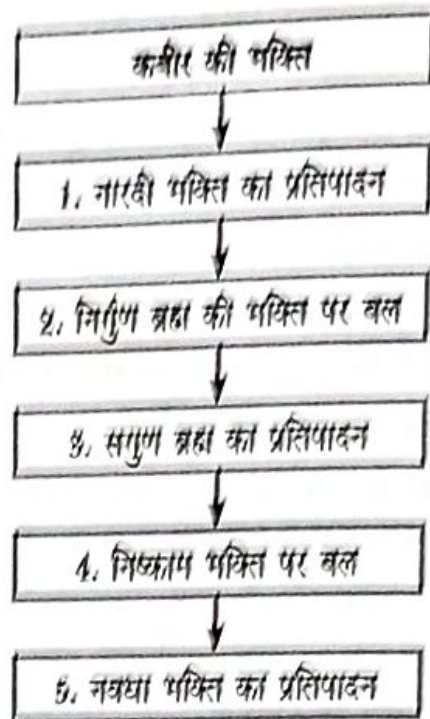 कबीर की भक्ति
1. नारदी भक्ति का प्रतिपादन
2. निर्गुण ब्रह्म की भक्ति पर बल
3. सगुण ब्रह्म का प्रतिपादन
4. निष्काम भक्ति पर बल
5. नवधा भक्ति का प्रतिपादन